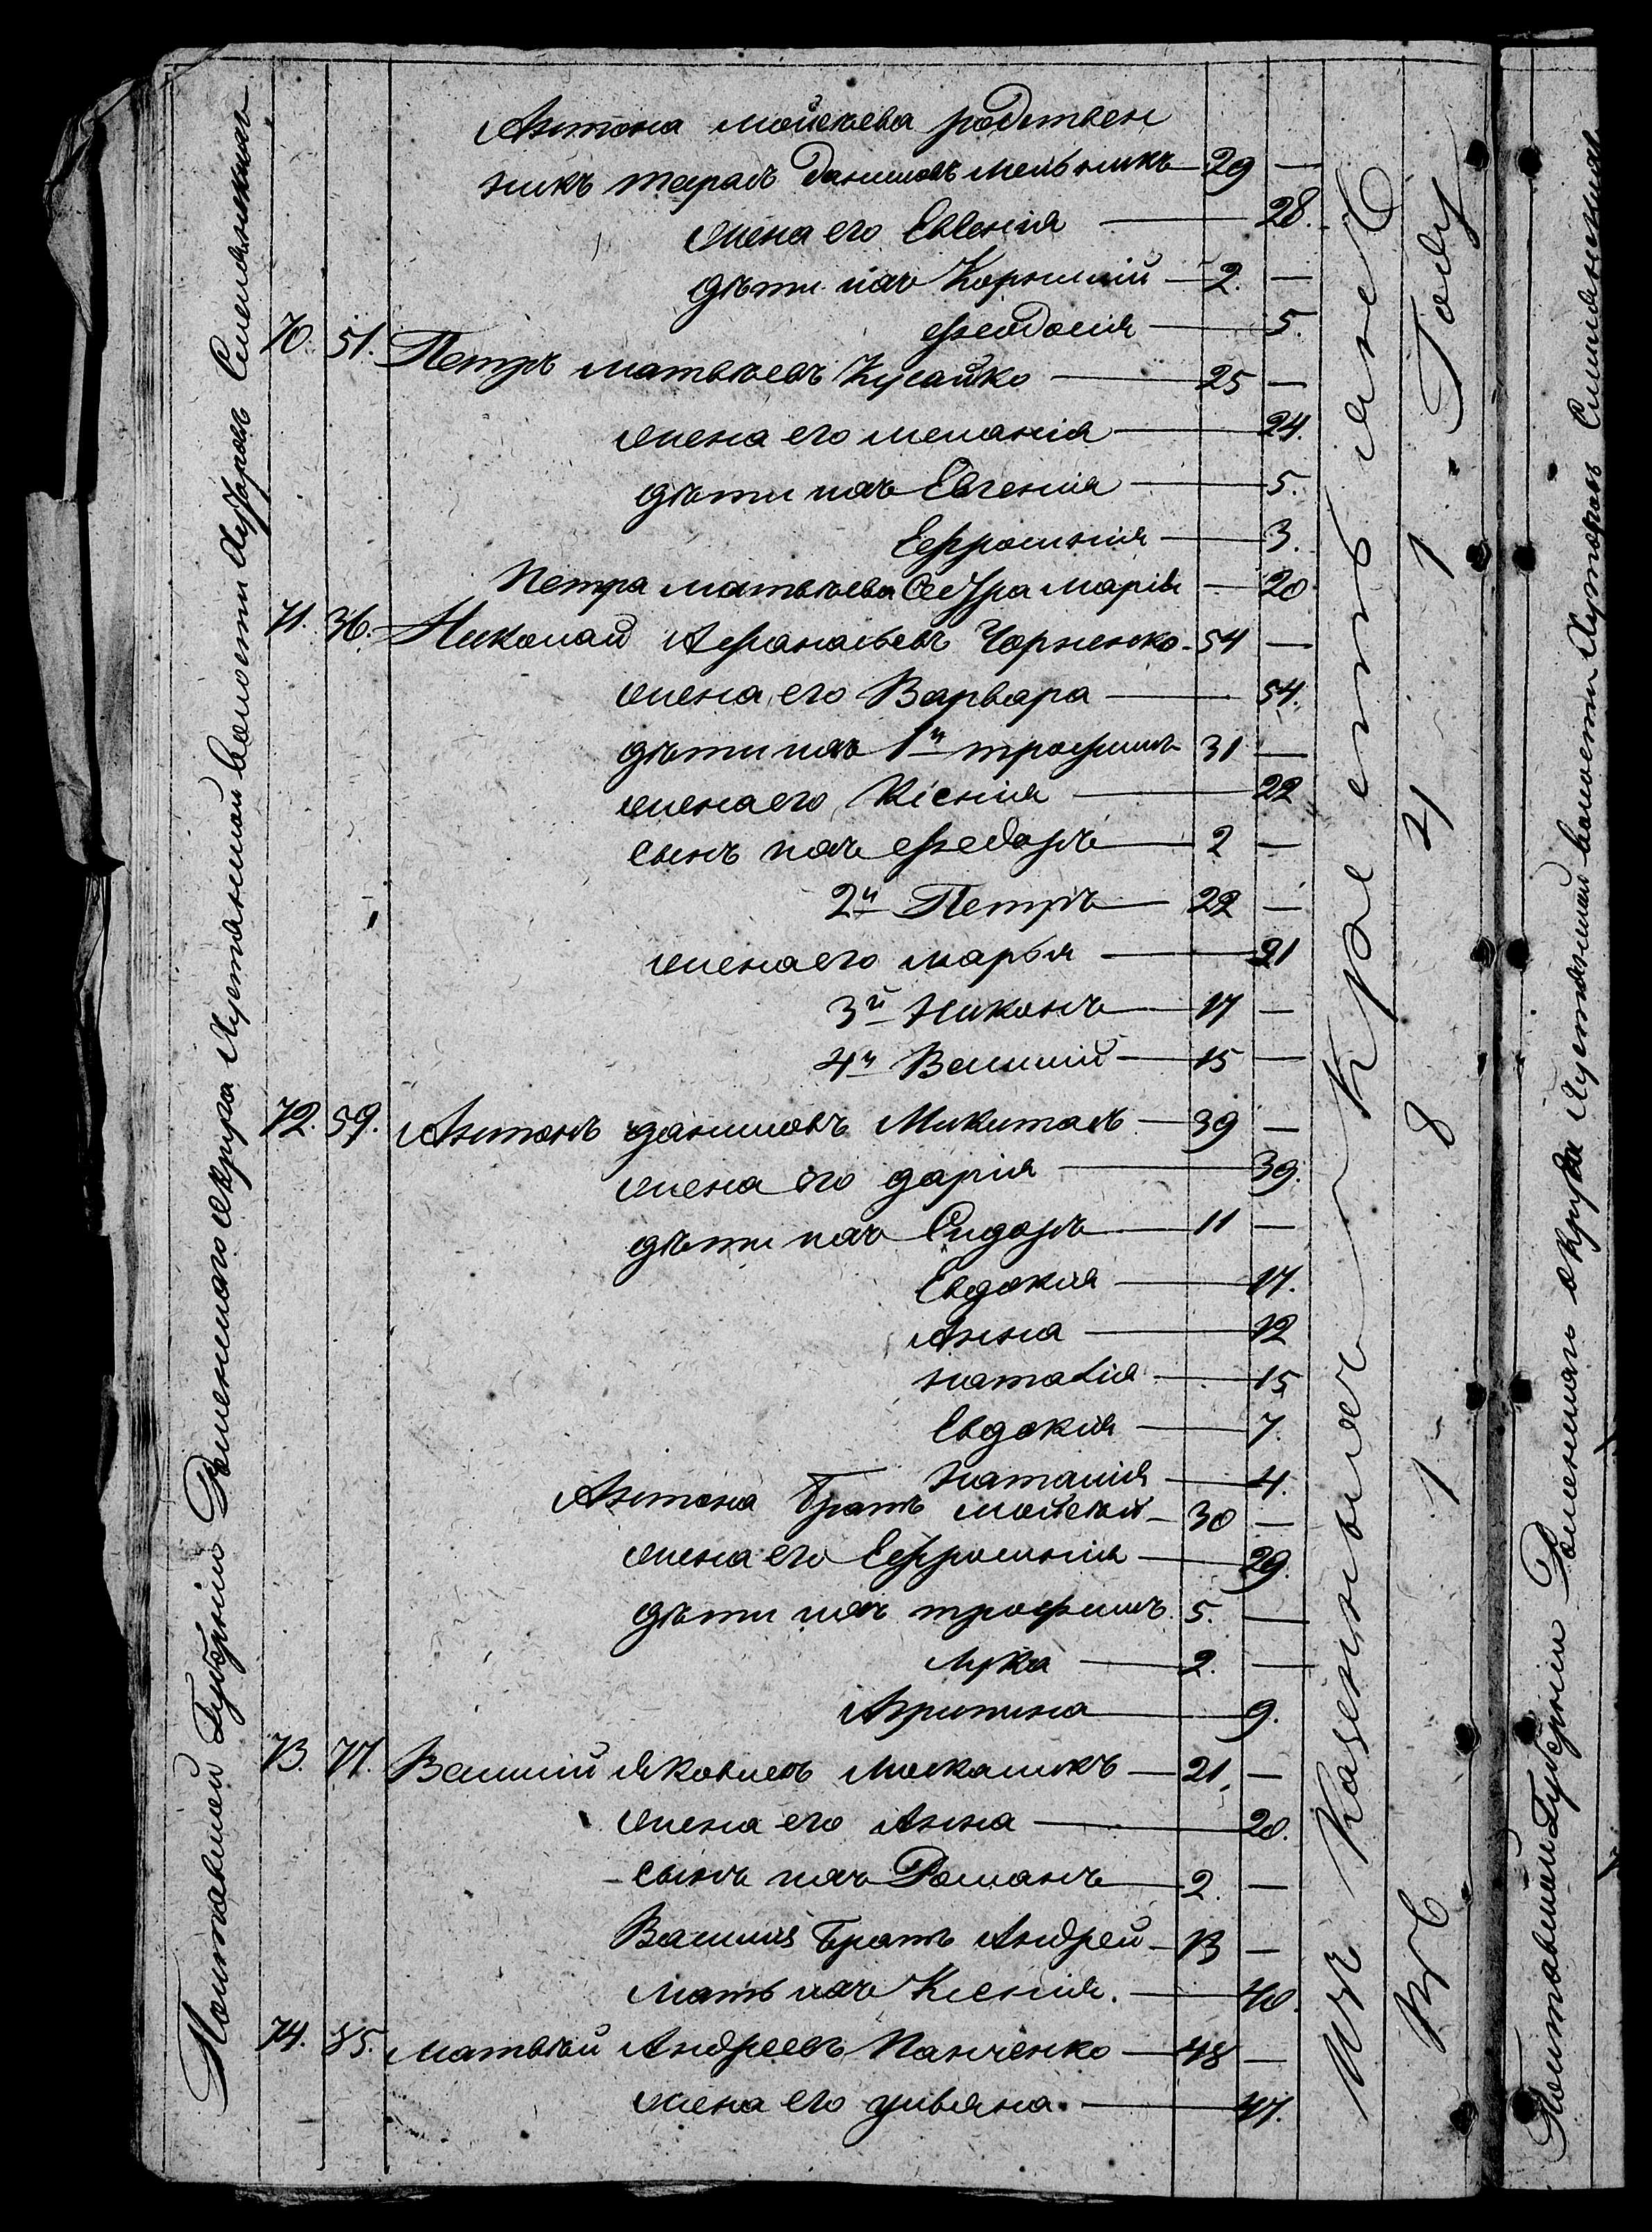 Антона Мойсѣева родствен
никъ Тарасъ Даниловъ Мельникъ — 29 —
жена его Евгенія — 28.
дѣти ихъ Корнилій — 2. —
Феодосія — 5.
70. 51. Петръ Матвѣевъ Кусайко — 25 —
жена его Меланія — 24.
дѣти ихъ Евгенія — 5.
Ефросинія — 3.
Петра Матвѣева Сестра Марія — 20
71. 36. Николай Афанасьевъ Чорненко — 54 —
жена его Варвара — 54.
дѣти ихъ 1й Трофимъ 31 —
жена его Ксенія — 22
сынъ ихъ Федоръ — 2 —
2й Петръ — 22 —
жена его Марья — 21
3й Никонъ — 17 —
4й Василій — 15 —
72. 59. Антонъ Даниловъ Микитась — 39 —
жена его Дарія — 39.
дѣти ихъ Сидоръ — 11 —
Евдокія — 17.
Анна — 12
Наталія — 15
Евдокія — 7.
Наталія — 4.
Антона Братъ Мойсѣй — 30 —
жена его Ефросинія — 29.
дѣти ихъ Трофимъ 5. —
Лука — 2. —
Агрипина — 9.
73. 77. Василій Яковлевъ Москаликъ — 21. —
жена его Анна — 20.
сынъ ихъ Романъ — 2. —
Василія Братъ Андрей — 13 —
Мать ихъ Ксенія. — 40.
74. 85. Матвѣй Андреевъ Панченко — 48 —
жена его Ульяна. — 47.
Полтавской Губерніи Роменского округа Хустянской волости Хуторовъ
Изъ Казенныхъ Крестьянъ
въ 1 8 21 1 - Году
Полтавской Губерніи Роменского округа Хустянской волости Хуторовъ